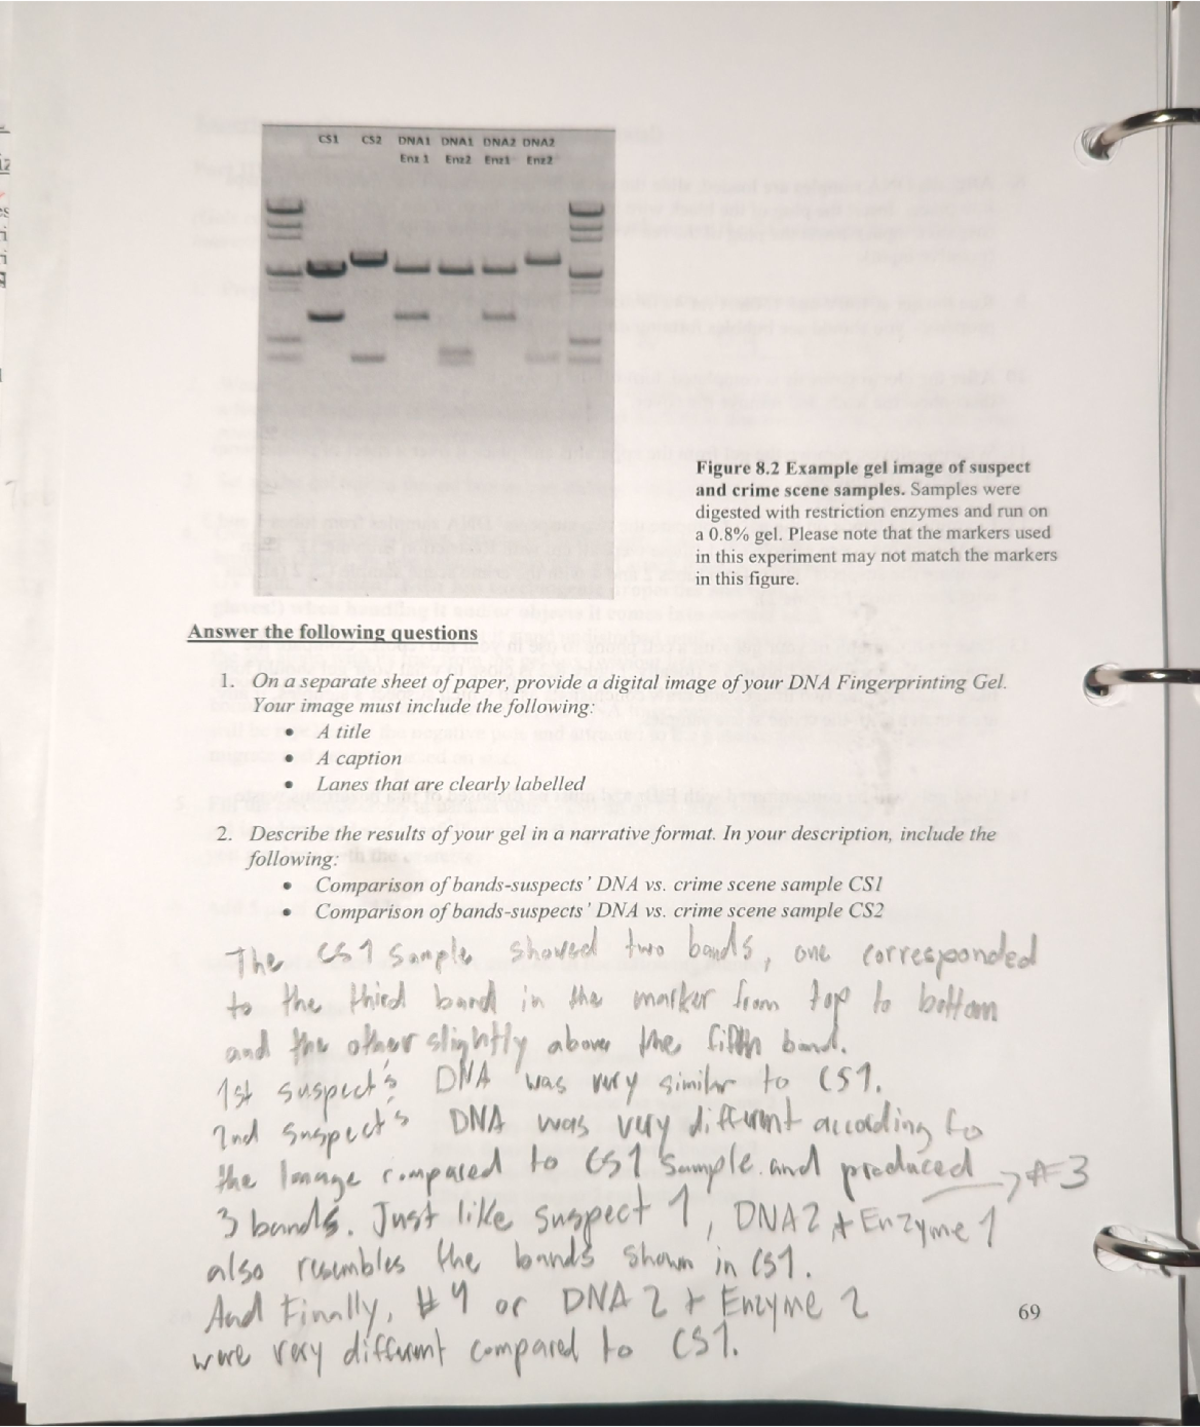 CS1 CS2 DNA1 DNA1 DNA2 DNA2
Enz 1 Enz2 Enz1 Enz2
Figure 8.2 Example gel image of suspect
and crime scene samples. Samples were
digested with restriction enzymes and run on
a 0.8% gel. Please note that the markers used
in this experiment may not match the markers
in this figure.
Answer the following questions
1. On a separate sheet of paper, provide a digital image of your DNA Fingerprinting Gel.
Your image must include the following:
• A title
• A caption
• Lanes that are clearly labelled
2. Describe the results of your gel in a narrative format. In your description, include the
following:
• Comparison of bands-suspects' DNA vs. crime scene sample CS1
• Comparison of bands-suspects' DNA vs. crime scene sample CS2
The CS1 Sample showed two bands, one corresponded
to the third band in the marker from top to bottom
and the other slightly above the fifth band.
1st suspect's DNA was very similar to CS1.
2nd suspect's DNA was very different according to
the Image compared to CS1 Sample. and produced → #3
3 bands. Just like suspect 1, DNA2 + Enzyme 1
also resembles the bands shown in CS1.
And Finally, #4 or DNA 2 + Enzyme 2
were very different compared to CS1.
69